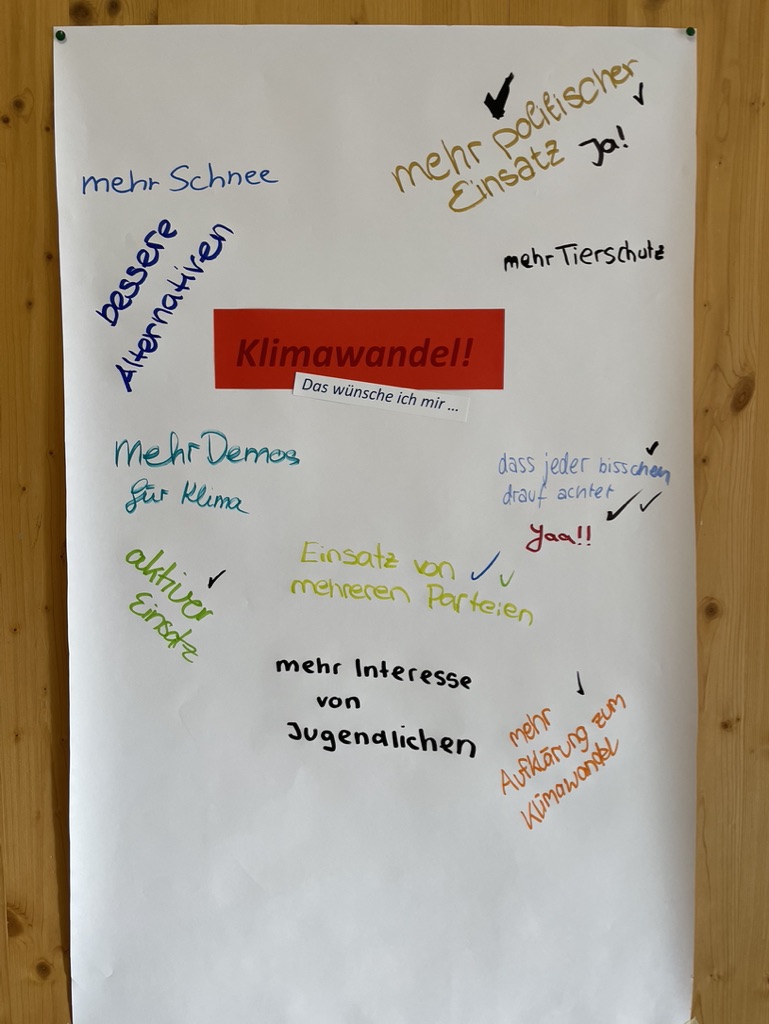 mehr politischer
Einsatz Ja!
mehr Schnee
bessere
Alternativen
mehr Tierschutz
Klimawandel!
Das wünsche ich mir ...
mehr Demos
für Klima
dass jeder bisschen
drauf achtet
Yaa!!
aktiver
Einsatz
Einsatz von
mehreren Parteien
mehr Interesse
von
Jugendlichen
mehr
Aufklärung zum
Klimawandel